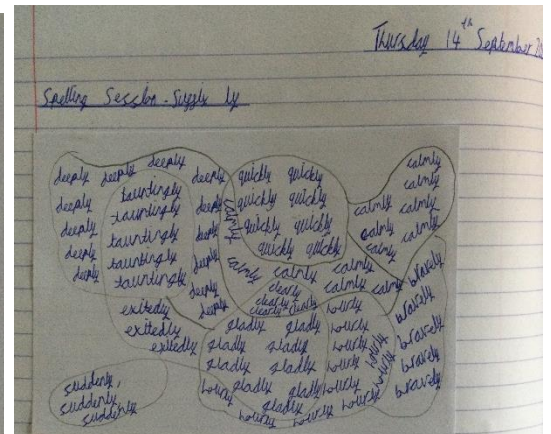 Thursday 14th September
Spelling Session - Suffix ly
deeply deeply deeply deeply
deeply deeply
deeply deeply
deeply deeply
deeply deeply
deeply
tauntingly
tauntingly
tauntingly
tauntingly
tauntingly
quickly quickly
quickly quickly
quickly quickly
quickly quickly
calmly
calmly
calmly calmly
calmly calmly
calmly
calmly
calmly calmly calmly
calmly calmly
clearly
clearly
clearly clearly
exitedly
exitedly
exitedly
gladly gladly
gladly gladly
gladly gladly
gladly gladly
gladly
hourly
hourly
hourly hourly
hourly hourly
hourly hourly
hourly
hourly hourly
bravely
bravely
bravely
bravely
bravely
suddenly,
suddenly
suddenly